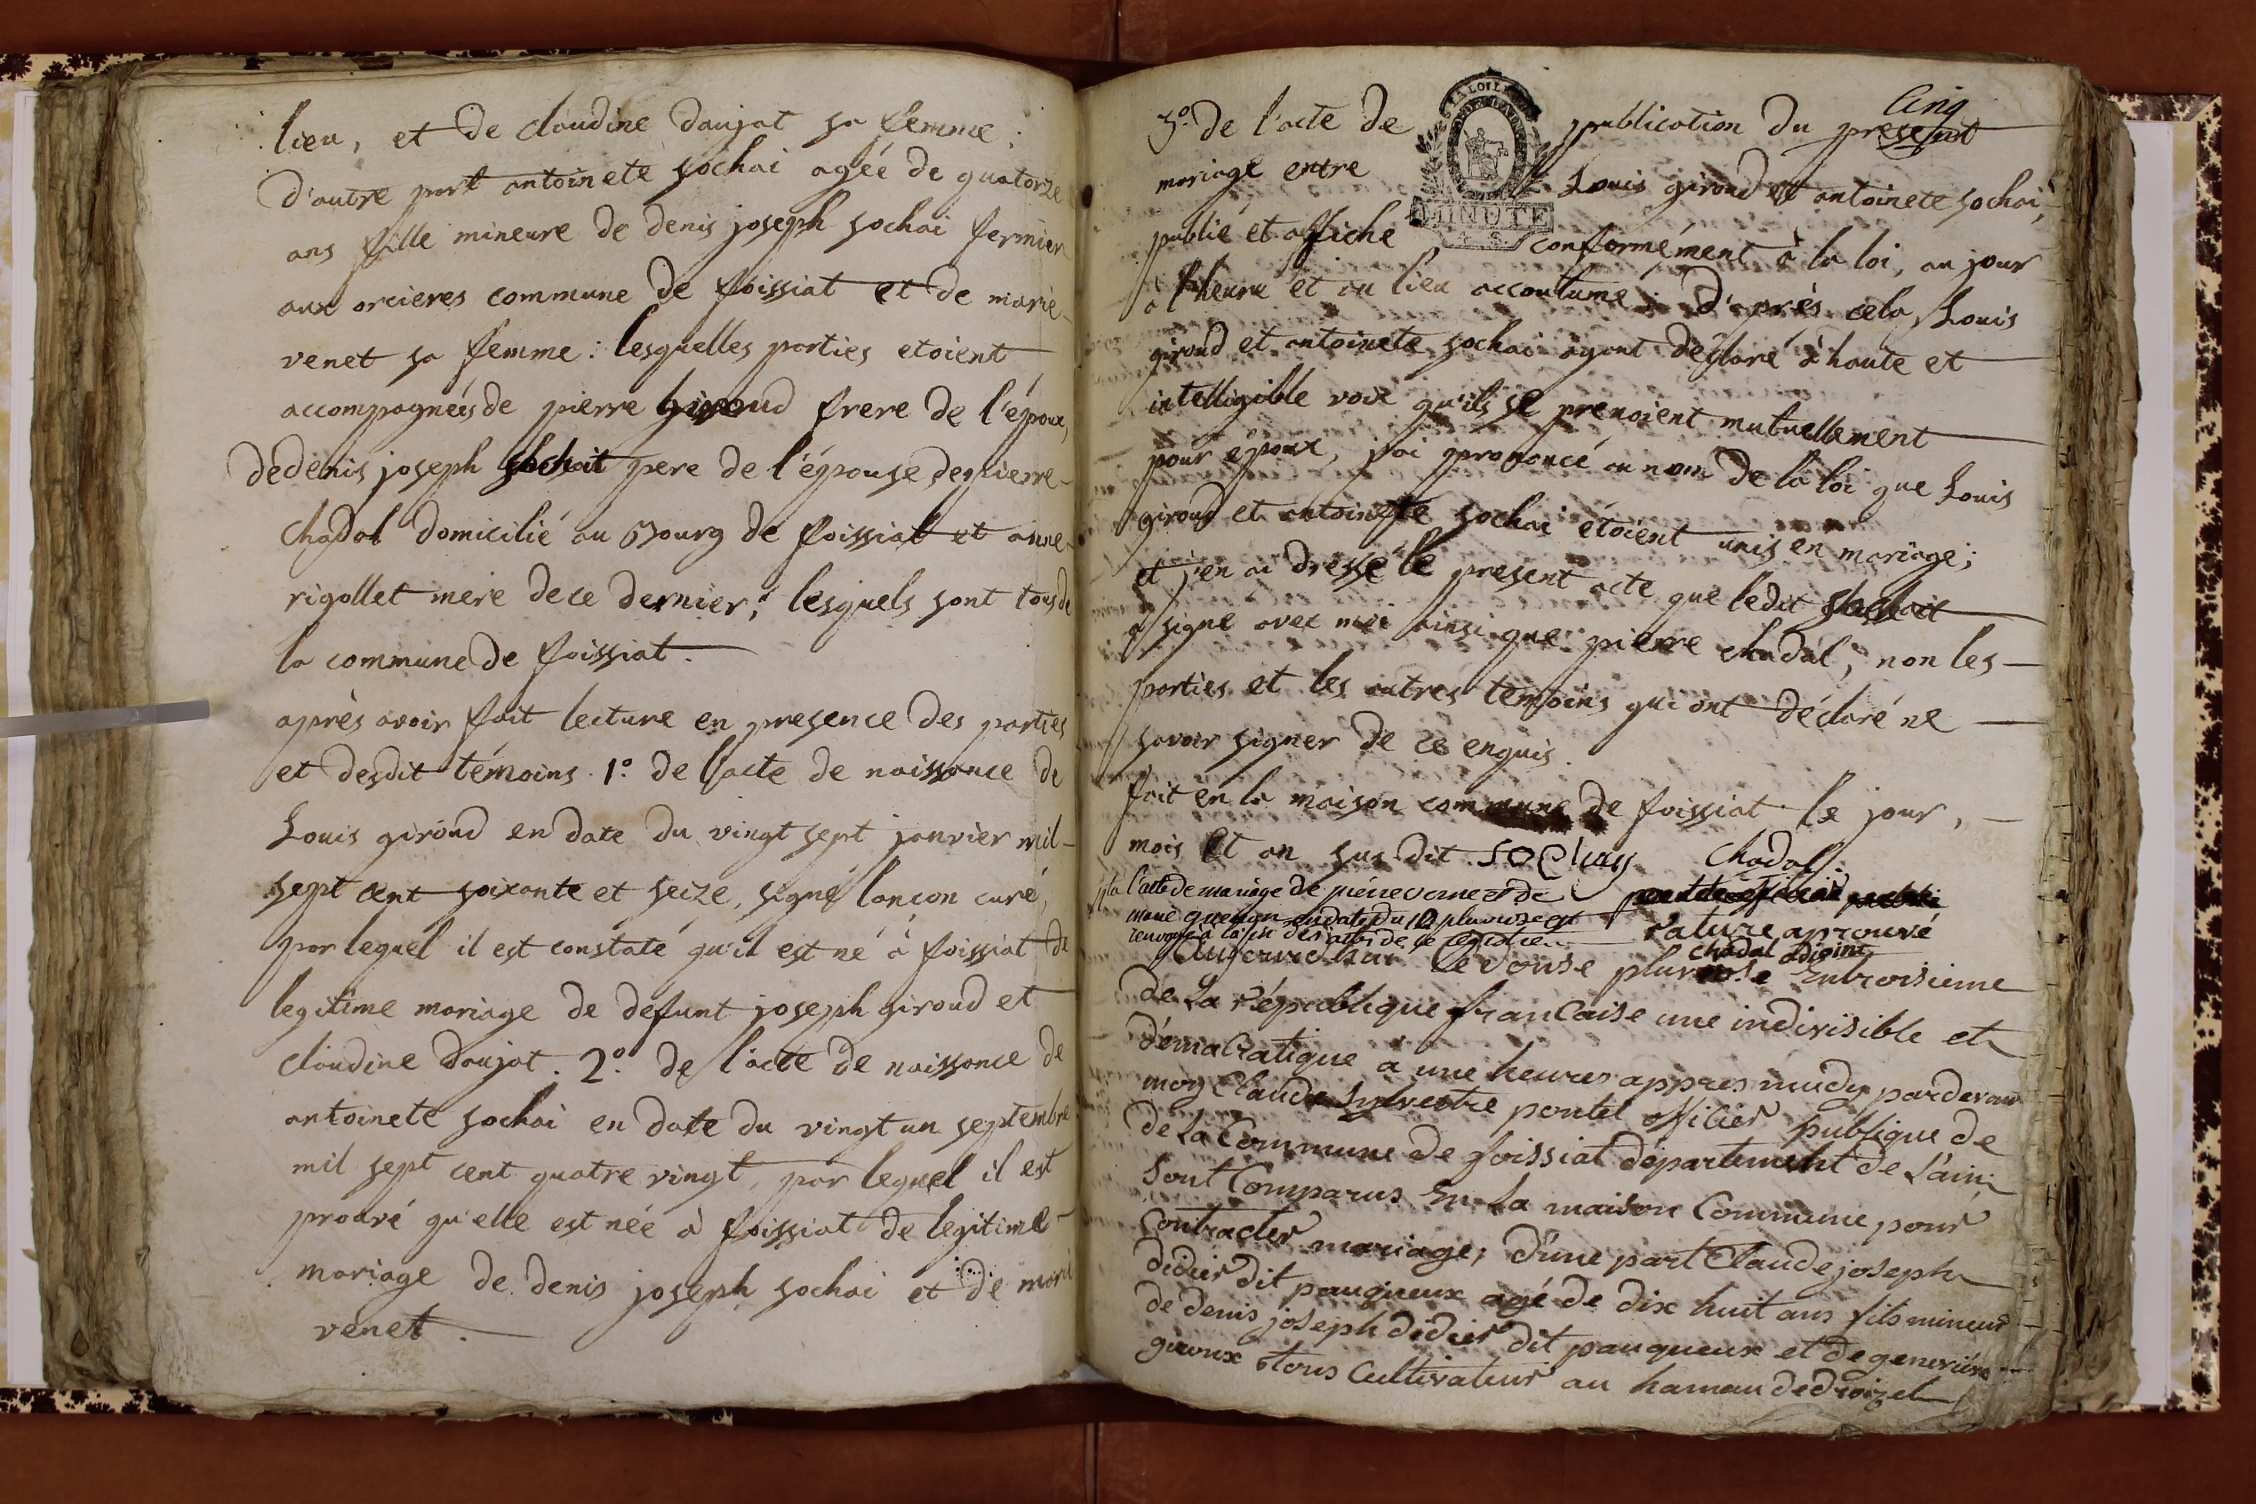 lieu, et de claudine daujat sa femme ;
d'autre part antoinete sochai agéé de quatorze
ans fille mineure de denis joseph sochai fermier
aux orcieres commune de foissiat et de marie
venet sa femme : lesquelles parties etoient
accompagnéés de pierre giroud frere de l'époux,
de denis joseph sochait pere de l'épouse de pierre
chadal domicilié au bourg de foissiat et anne
rigollet mere de ce dernier ; lesquels sont tous de
la commune de foissiat.
après avoir fait lecture en presence des parties
et desdit témoins 1.° de l'acte de naissance de
Louis giroud en date du vingt sept janvier mil
sept cent soixante et seize, signé lancon curé,
par lequel il est constaté qu'il est né à foissiat de
legitime mariage de defunt joseph giroud et
claudine daujat. 2.° de l'acte de naissance de
antoinete sochai en date du vingt un septembre
mil sept cent quatre vingt, par lequel il est
prouvé qu'elle est née à foissiat de legitime
mariage de denis joseph sochai et de marie
venet.
Cinq
3.° de l'acte de publication du present
mariage entre Louis giroud et antoinete sochai,
LA LOI LE ROI
MINUTE
publié et affiché conformément à la loi, au jour
à l'heure et au lieu accoutumé ; d'après cela, Louis
giroud et antoinete sochai ayant déclaré à haute et
intelligible voix qu'ils se prenoient mutuellement
pour époux, j'ai prononcé au nom de la loi que Louis
giroud et antoinete sochai étoient unis en mariage ;
et j'en ai dressé le present acte que ledit sochait
a signé avec moi ainsi que pierre chadal, non les
parties et les autres temoins qui ont déclaré ne
savoir signer de ce enquis.
fait en la maison commune de foissiat le jour,
mois et an sus dit. sochay chadal
l'acte de mariage de pierre verne et de
marie en date du 12 pluviose est
renvoyé à la fin des actes de ce registre
rature aprouvé
chadal adjoint
Aujourd'hui le douse pluviose En troisieme
de La république francaise une indivisible et
démocratique à une heures appres midy pardevant
moy Claude Sylvestre pontel officier publique de
de La Commune de foissiat département de L'ain
Sont Comparus En La maison Commune pour
Contracter mariage, d'une part Claude joseph
didier dit pauqueux agé de dix huit ans fils mineur
de denis joseph didier dit pauqueux et de
giroux tous Cultivateur au hameau de droizel